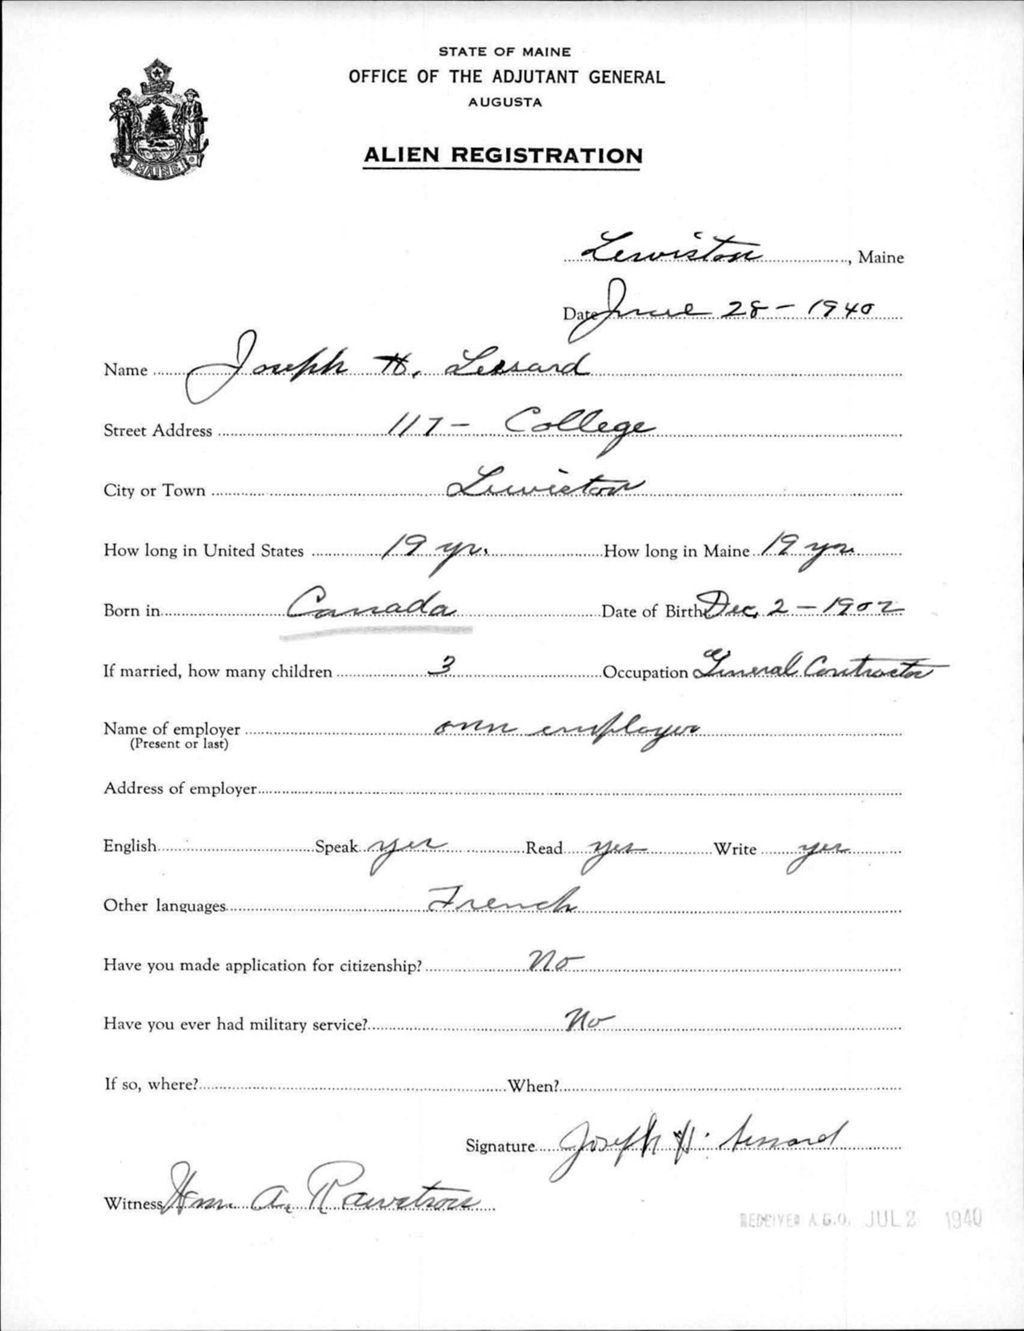 STATE OF MAINE
OFFICE OF THE ADJUTANT GENERAL
AUGUSTA
ALIEN REGISTRATION
MAINE
Lewiston, Maine
Date June 28 - 1940
Name Joseph H. Lessard
Street Address 117 - College
City or Town Lewiston
How long in United States 19 yr. How long in Maine 19 yrs
Born in Canada Date of Birth Dec. 2 - 1902
If married, how many children 3 Occupation General Contractor
Name of employer own employer
(Present or last)
Address of employer
English Speak yes Read yes Write yes
Other languages French
Have you made application for citizenship? No
Have you ever had military service? No
If so, where? When?
Signature Joseph H. Lessard
Witness A.
RECEIVED A.G.O. JUL 2 1940